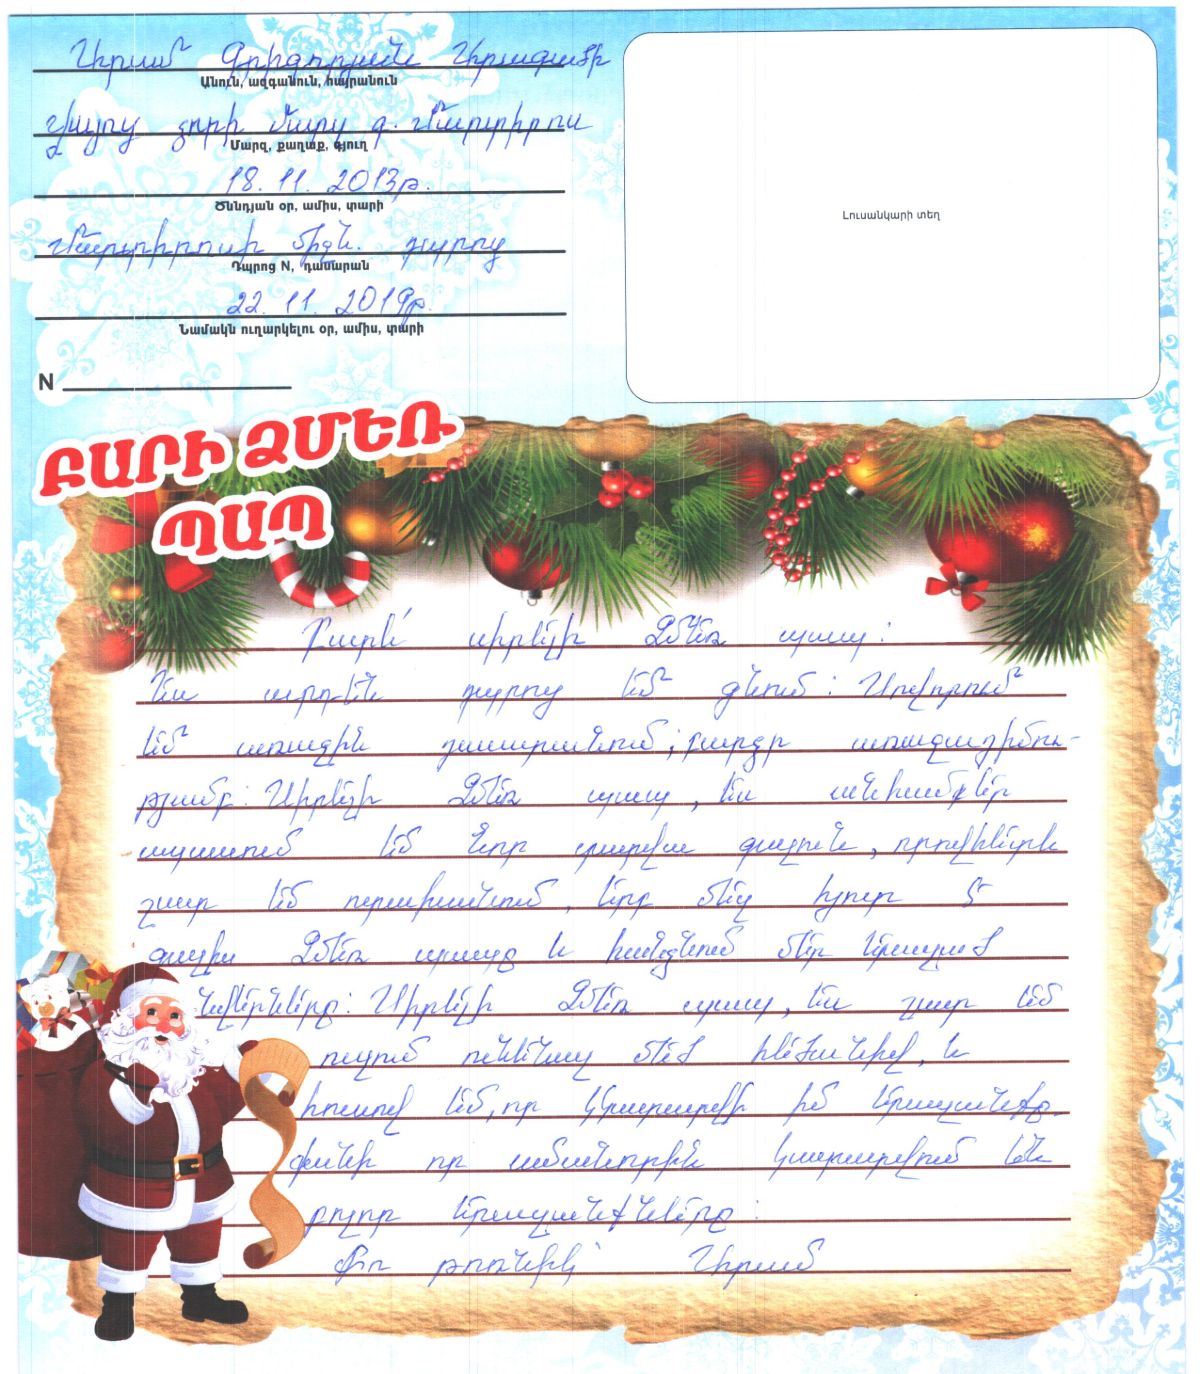 Միրամ Գրիգորյան Միրազատի
Անուն, ազգանուն, հայրանուն
Վայոց ձորի մարզ գ. Մարտիրոս
Մարզ, քաղաք, գյուղ
18. 11. 2013թ.
Ծննդյան օր, ամիս, տարի
Մարտիրոսի միջն. դպրոց
Դպրոց N, դասարան
22. 11. 2019թ.
Նամակն ուղարկելու օր, ամիս, տարի
N
Լուսանկարի տեղ
ԲԱՐԻ ՁՄԵՌ
ՊԱՊ
Բարև՛ սիրելի Ձմեռ պապ:
Ես արդեն դպրոց եմ գնում: Սովորում
եմ առաջին դասարանում, բարձր առաջադիմու-
թյամբ: Սիրելի Ձմեռ պապ, ես անհամբեր
սպասում եմ Նոր տարվա գալուն, որովհետև
շատ եմ ուրախանում, երբ մեզ հյուր է
գալիս Ձմեռ պապը և հանձնում մեր երազած
նվերները: Սիրելի Ձմեռ պապ, ես շատ եմ
ուզում ունենալ մեծ հեծանիվ, և
հուսով եմ, որ կկատարվի իմ երազանքը,
քանի որ ամանորին կատարվում են
բոլոր երազանքները:
Քո թոռնիկ՝ Միրամ